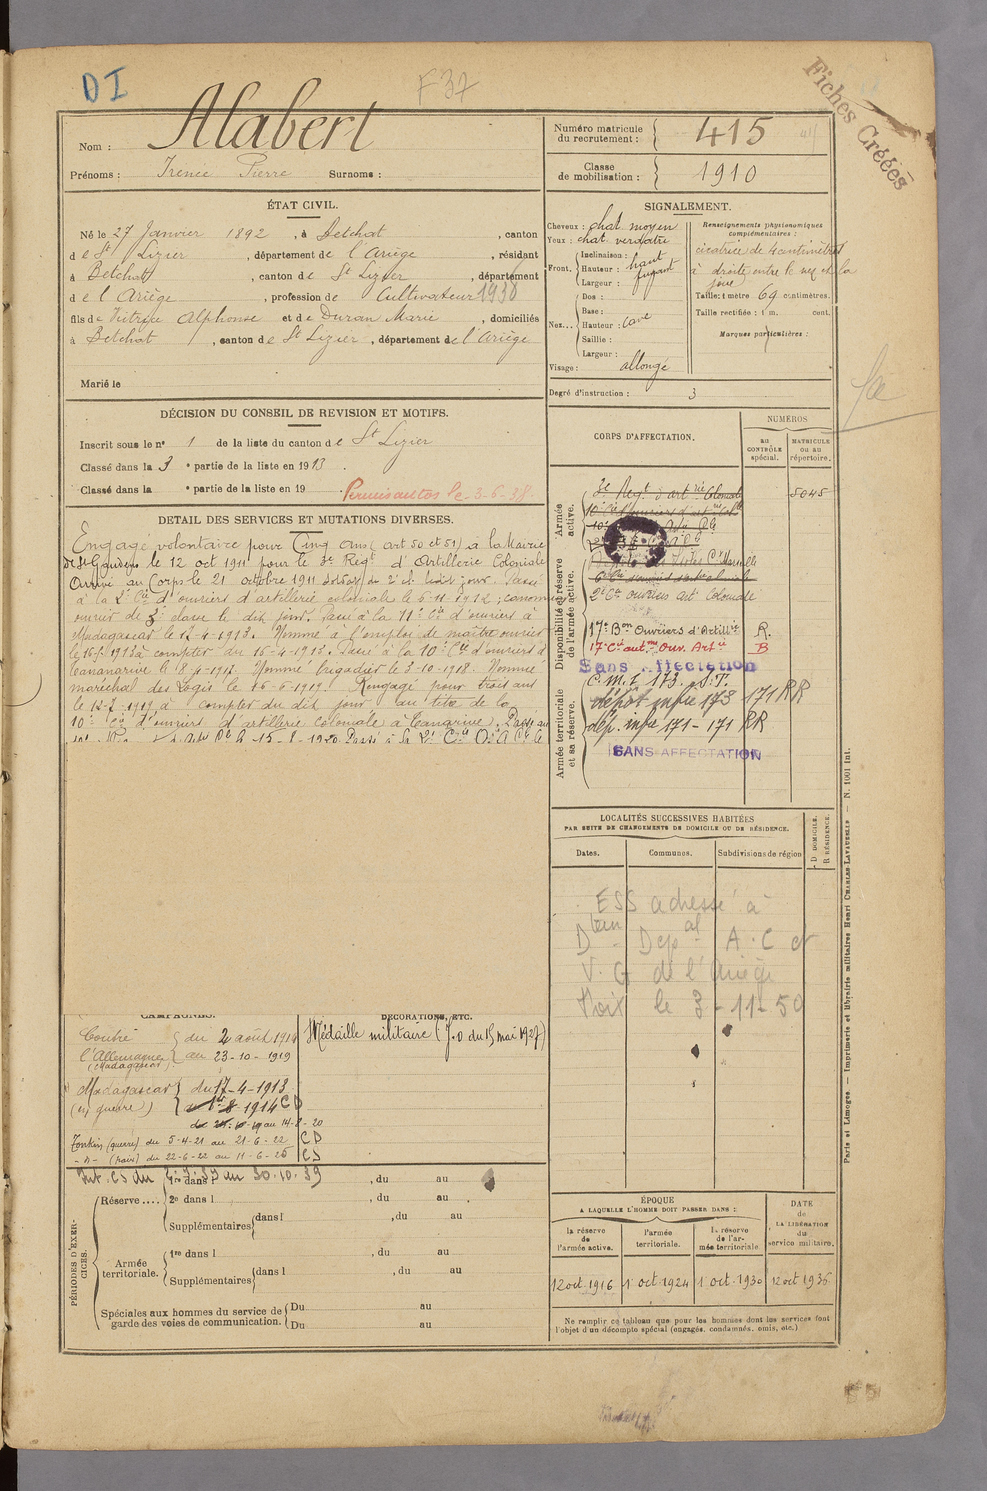 DI
F37
Fiches Créées
Nom : Alabert
Prénoms : Irénée Pierre Surnoms :
Numéro matricule du recrutement : 415
Classe de mobilisation : 1910
ÉTAT CIVIL.
Né le 27 Janvier 1892, à Betchat, canton
de St Lizier, département de l'Ariège, résidant
à Betchat, canton de St Lizier, département
de l'Ariège, profession de Cultivateur 1930
fils de Victrice Alphonse et de Duran Marie, domiciliés
à Betchat, canton de St Lizier, département de l'Ariège
Marié le
SIGNALEMENT.
Cheveux : chat. moyen
Yeux : chat verdatre
Front. Inclinaison :
Hauteur : haut
Largeur : fuyant
Nez... Dos :
Base :
Hauteur : cave
Saillie :
Largeur :
Visage : allongé
Renseignements physionomiques complémentaires :
cicatrice de 4 centimètres
à droite entre le nez et la
joue
Taille : 1 mètre 69 centimètres.
Taille rectifiée : 1 m. cent.
Marques particulières :
Degré d'instruction : 3
DÉCISION DU CONSEIL DE REVISION ET MOTIFS.
Inscrit sous le n° 1 de la liste du canton de St Lizier
Classé dans la 3e partie de la liste en 1913.
Classé dans la e partie de la liste en 19
Permis autos le 3-6-38.
DÉTAIL DES SERVICES ET MUTATIONS DIVERSES.
Engagé volontaire pour Cinq ans (art 50 et 51) à la Mairie
de St Gaudens le 12 oct 1911 pour le 3e Régt d'Artillerie Coloniale
Arrivé au Corps le 21 octobre 1911 soldat de 2e cl. le dit jour. Passé
à la 2e Cie d'ouvriers d'artillerie coloniale le 6-11-1912 ; canonnier
ouvrier de 3e classe le dit jour. Passé à la 11e Cie d'ouvriers à
Madagascar le 17-4-1913. Nommé à l'emploi de maître ouvrier
à compter du 16-4-1913. Passé à la 10e Cie d'ouvriers à
Tananarive le 8-4-1917. Nommé brigadier le 3-10-1918. Nommé
maréchal des Logis le 16-6-1919. Rengagé pour trois ans
à compter du dit jour au titre de la
10e Cie d'ouvriers d'artillerie coloniale à Tananrive. Passé au
15-8-1920 Passé à la 2e Cie
CORPS D'AFFECTATION.
NUMÉROS
au CONTRÔLE spécial.
MATRICULE ou au répertoire.
Armée active.
3e Régt d'artrie Coloniale
5045
Disponibilité et réserve de l'armée active.
2e Cie ouvriers art Coloniale
17e Bon Ouvriers d'Artillie R.
17e Cie aut. me Ouv. Artie B
Sans Affectation
Armée territoriale et sa réserve.
C.m.I 173. S.P.
dépôt infie 173 171 RR
dép. infie 171 - 171 RR
SANS AFFECTATION
LOCALITÉS SUCCESSIVES HABITÉES
PAR SUITE DE CHANGEMENTS DE DOMICILE OU DE RÉSIDENCE.
Dates. Communes. Subdivisions de région
D. DOMICILE.
R. RÉSIDENCE.
ESS adressé à
Dtion Dépal A.C et
V.G de l'Ariège
Foix le 3-11-50
CAMPAGNES.
Contre l'Allemagne (Madagascar) du 2 août 1914
au 23-10-1919
Madagascar du 17-4-1913
(en guerre) au 1er 8 1914 CD
au 14-8-20
Tonkin (guerre) du 5-4-21 au 21-6-22 CD
-"- (paix) du 22-6-22 au 11-6-25 CS
DÉCORATIONS, ETC.
Médaille militaire (J.O du 15 mai 1927)
au 30.10.39
PÉRIODES D'EXERCICES.
Réserve .... 1re dans l , du au
2e dans l , du au
Supplémentaires dans l , du au
Armée territoriale. 1re dans l , du au
Supplémentaires dans l , du au
Spéciales aux hommes du service de garde des voies de communication. Du au
Du au
ÉPOQUE
A LAQUELLE L'HOMME DOIT PASSER DANS :
la réserve de l'armée active.
l'armée territoriale.
la réserve de l'armée territoriale.
DATE de LA LIBÉRATION du service militaire.
12 oct. 1916 1 oct. 1924 1 oct. 1930 12 oct 1936
Ne remplir ce tableau que pour les hommes dont les services font
l'objet d'un décompte spécial (engagés, condamnés, omis, etc.)
Paris et Limoges. — Imprimerie et librairie militaires Henri CHARLES-LAVAUZELLE — N. 1001 Int.